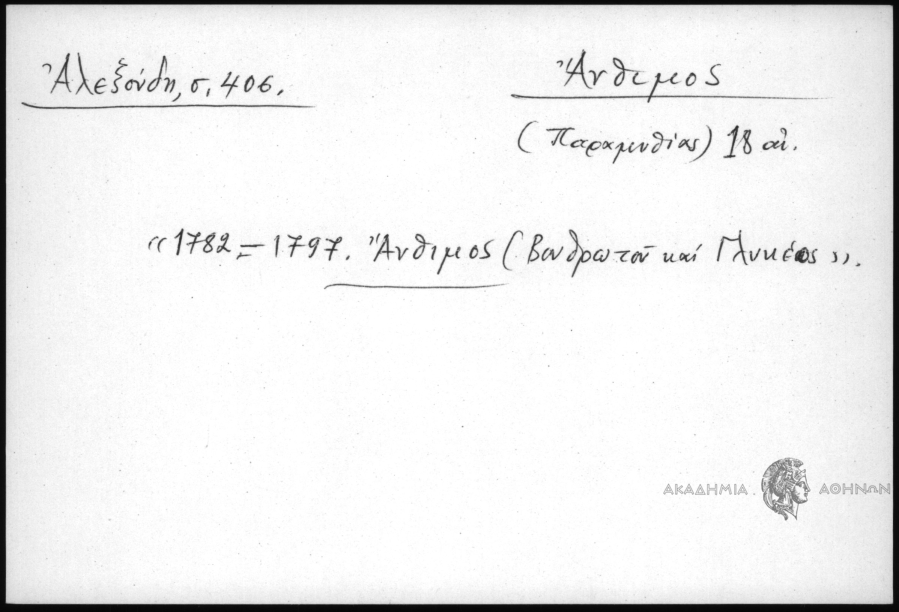 Ἀλεξούδη, σ. 406.
Ἄνθιμος
(Παραμυθίας) 18 αἰ.
«1782 – 1797. Ἄνθιμος (Βουθρωτοῦ καί Γλυκέος».
ΑΚΑΔΗΜΙΑ ΑΘΗΝΩΝ